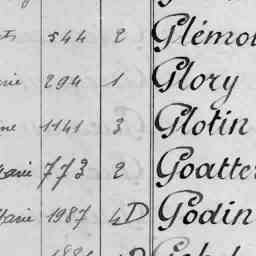 544 2 Glémo
294 1 Glory
1141 3 Glotin
Marie 773 2 Goatte
Marie 1987 4D Godin